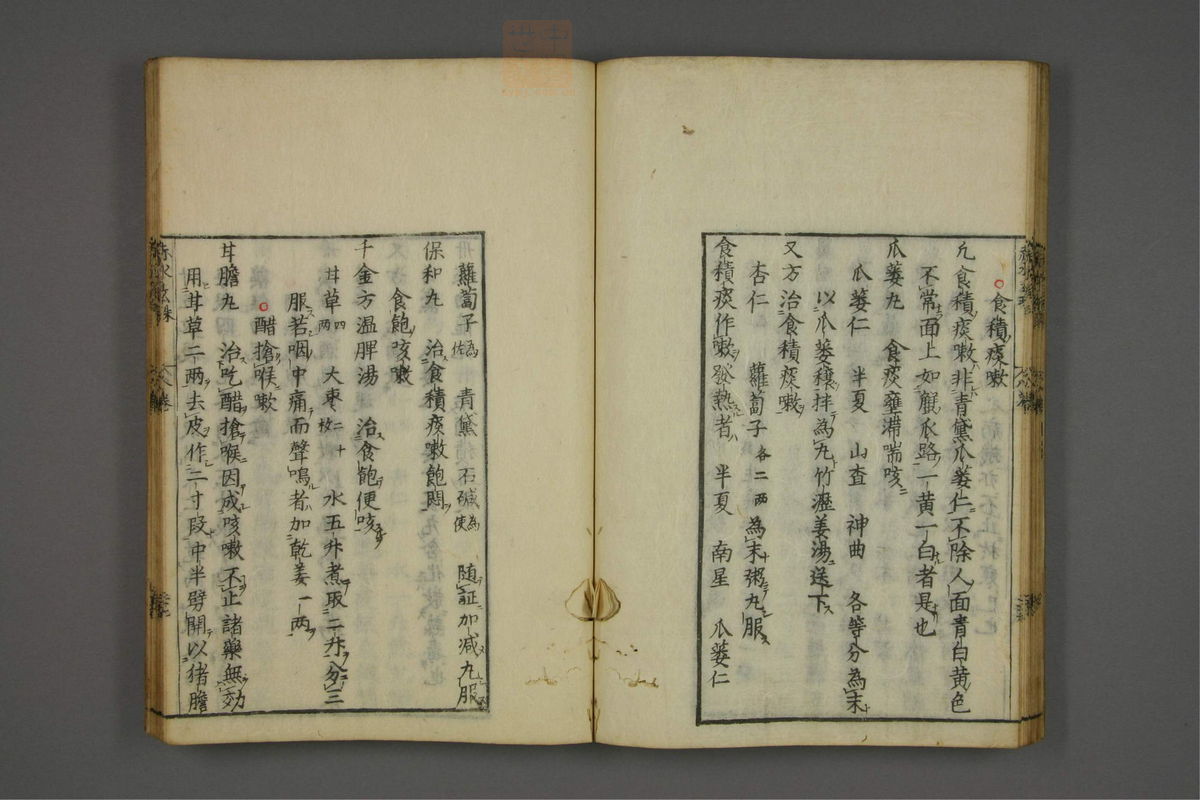 食積痰嗽
凢食積痰嗽非青黛瓜蔞仁不除人面青白黄色
不常面上如蟹爪路一黄一白者是也
瓜蔞丸　食痰壅滞喘咳
瓜蔞仁　半夏　山査　神曲　各等分為末
以瓜蔞穰拌為丸竹瀝姜湯送下
又方治食積痰嗽
杏仁　蘿蔔子各二两　為末粥丸服
食積痰作嗽發熱者　半夏　南星　瓜蔞仁
蘿蔔子為佐　青黛　石鹹為使　随証加减丸服
保和丸　治食積痰嗽飽悶
食飽咳嗽
千金方温脾湯　治食飽便咳
甘草四两　大枣二十枚　水五升煮取二升分三
服若咽中痛而聲鳴者加乾姜一两
醋搶喉嗽
甘膽丸　治吃醋搶喉因成咳嗽不止諸藥無効
用甘草二两去皮作二寸段中半劈開以猪膽
赤水玄珠